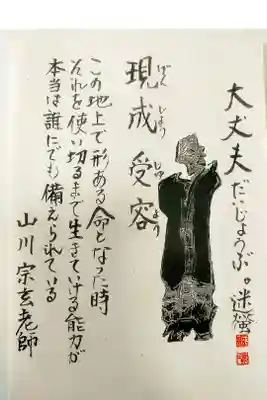 大丈夫 だいじょうぶ。
現成 受容
げん じょう じゅ よう
この地上で形ある命となった時
それを使い切るまで生きていける能力が
本当は誰にでも備えられている
山川 宗玄老師